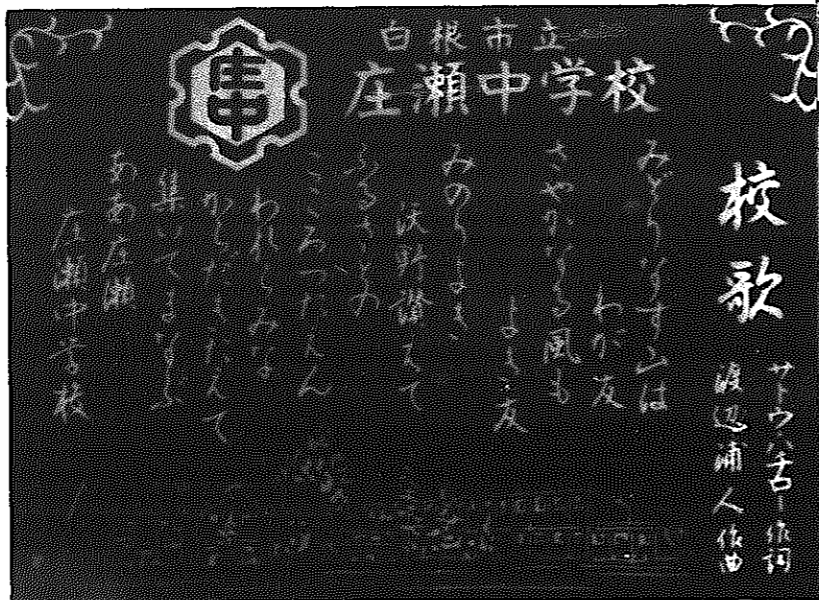 白根市立
庄瀬中学校
校歌
サトウハチロー作詞
渡辺浦人作曲
みどりなす山は
わが友
さやかなる風も
よき友
みのりよき
沃野讃えて
ふるさとの
こころつたえん
われらみな
からだきたえて
集いてまなぶ
ああ庄瀬
庄瀬中学校